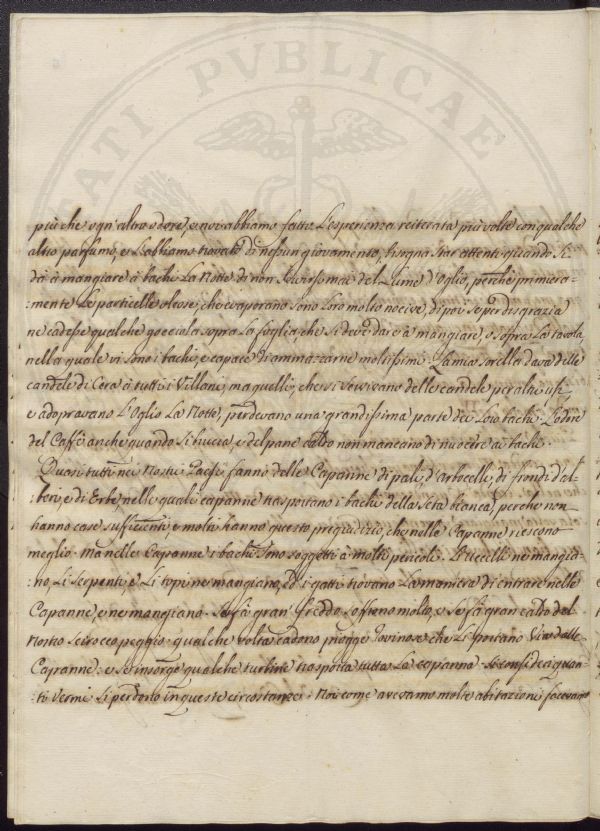 ATI PVBLICAE
più che ogn'altro odore, e noi abbiamo fatto l'esperienza reiterata più volte con qualche
altro parfumo, e l'abbiamo trovato di nessun giovamento, bisogna star attenti quando si
dà à mangiare à bachi La Notte di non servirsi mai del Lume d'Oglio, perchè primiera-
-mente Le particelle oleose, che evaporano sono Loro molto nocive, di poi se per disgrazia
ne cadesse qualche gocciola sopra La foglia, che si deve dare à mangiare, o sopra La tavola,
nella quale vi sono i bachi, è capace di ammazzarne moltissimi. La mia sorella dava delle
candele di Cera à tutti i Villani, ma quelli, che si servivano delle candele per altri usi,
e adopravano L'Oglio La Notte, perdevano una grandissima parte dei Loro bachi. L'odore
del Caffè anche quando si bruccia, e del pane caldo non mancano di nuocere ai bachi.
Quasi tutti nei Nostri Paesi fanno delle Capanne di pali, d'arboscelli, di frondi d'al-
beri, e di Erbe, nelle quali capanne trasportano i bachi della seta bianca, perche non
hanno case sufficienti, e molti hanno questo pregiudizio, che nelle Capanne riescono
meglio. ma nelle Capanne i bachi sono soggetti à molti pericoli. L'uccelli ne mangia-
-no, Li serpenti, e Li topi ne mangiano, ed i gatti trovano La maniera di entrare nelle
Capanne, e ne mangiano. Se fà gran freddo soffrono molto, e se fà gran caldo del
Nostro scirocco peggio. qualche volta cadono piogge rovinose che Li portano via dalle
Capanne: e se insorge qualche turbine trasporta tutta La capanna. si consideri quan-
-ti Vermi si perdono in queste circostanze. Noi come avevamo molte abitazioni facevamo